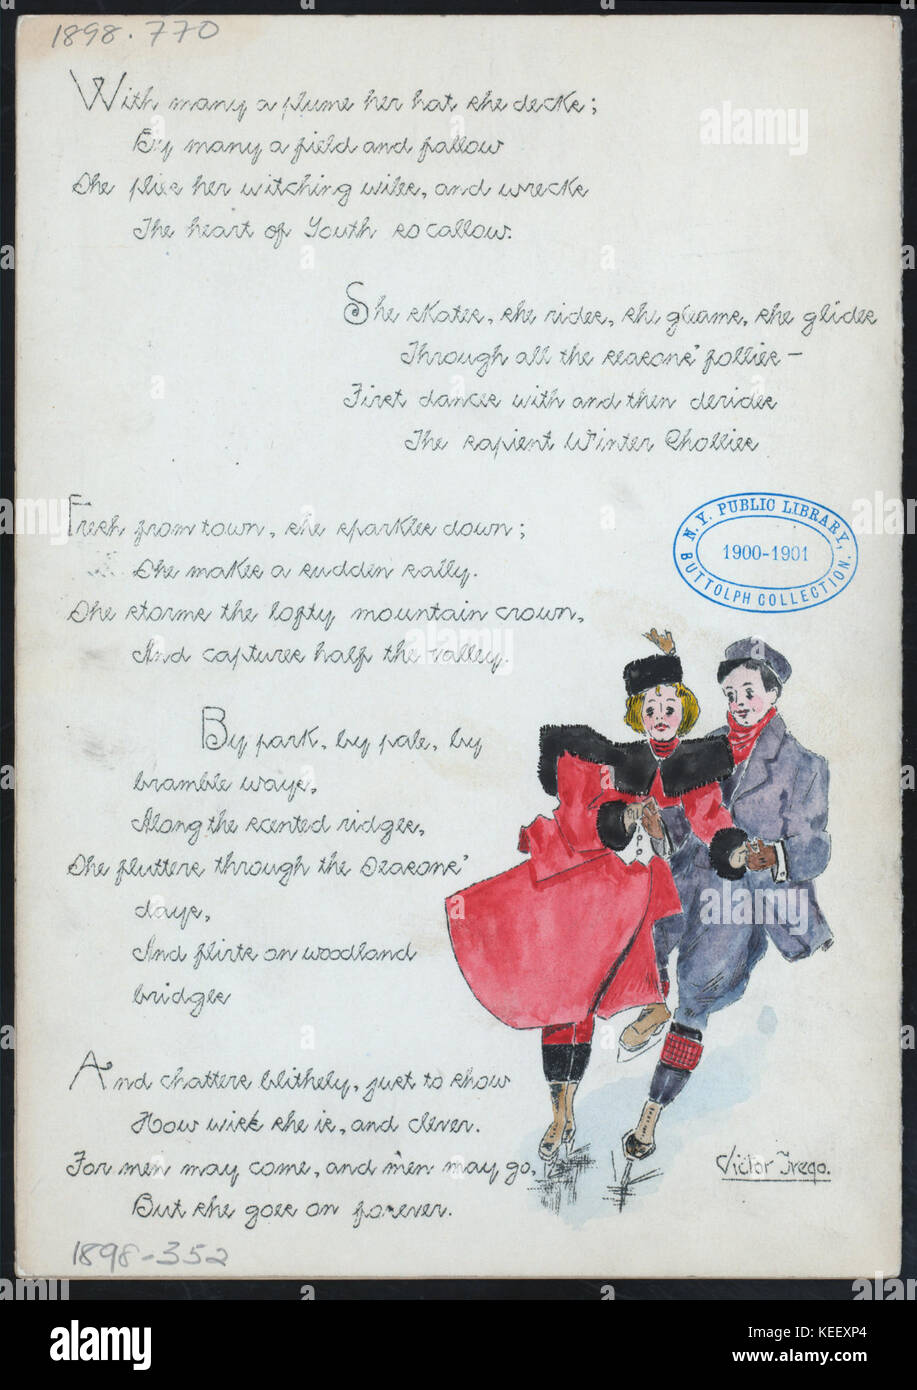 1898.770
With many a plume her hat she decks;
By many a field and fallow
She plies her witching wiles, and wrecks
The heart of Youth so callow.
She skates, she rides, she gleams, she glides
Through all the seasons' follies—
First dances with and then derides
The sapient Winter Chollies
Fresh from town, she sparkles down;
She makes a sudden sally.
She storms the lofty mountain crown,
And captures half the valley.
N.Y. PUBLIC LIBRARY,
1900-1901
BUTTOLPH COLLECTION.
By park, by pale, by
bramble ways,
Along the scented ridges,
She flutters through the Seasons'
days,
And flirts on woodland
bridges
And chatters blithely, just to show
How wise she is, and clever.
For men may come, and men may go,
But she goes on forever.
Victor Trego.
1898-352
alamy
alamy
alamy
Image ID: KEEXP4
www.alamy.com